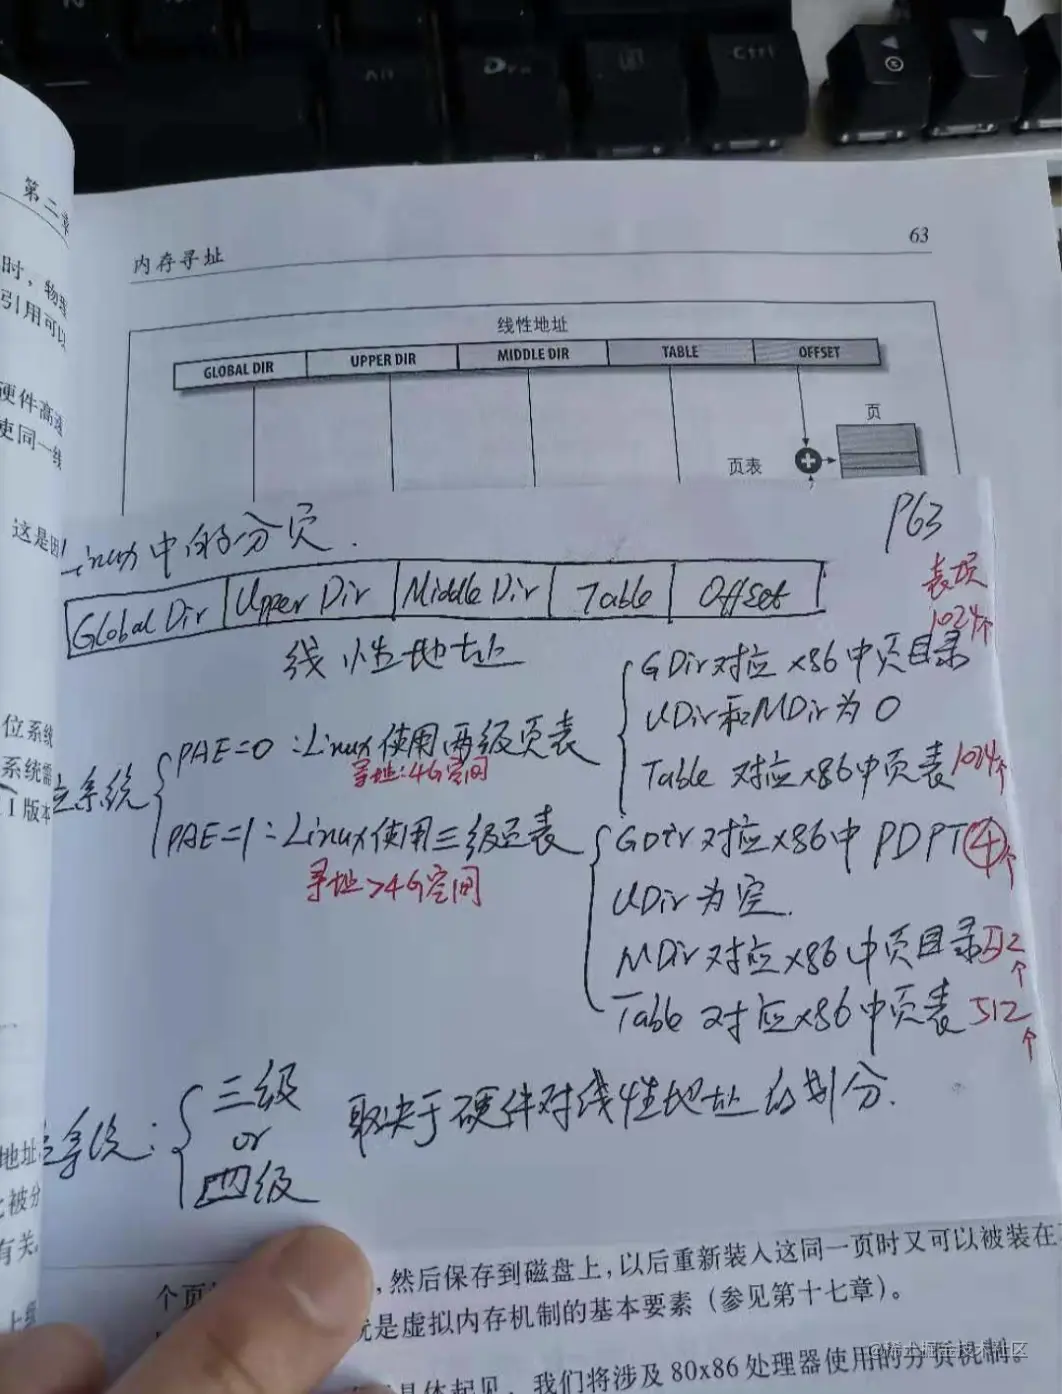 Alt
Ctrl
第二章
时，物理
引用可以
硬件高速
使同一线
这是因
位系统
系统需
I版本
地址
被分
有关。
内存寻址
63
线性地址
GLOBAL DIR UPPER DIR MIDDLE DIR TABLE OFFSET
页
页表
Linux中的分页.
P63
Global Dir Upper Dir Middle Dir Table Offset
线性地址
表项
1024个
GDir对应x86中页目录
UDir和MDir为0
Table 对应x86中页表1024个
位系统
PAE=0:Linux使用两级页表
寻址:4G空间
PAE=1:Linux使用三级页表
寻址>4G空间
GDir对应x86中PDPT④个
UDir为空.
MDir对应x86中页目录512个
Table 对应x86中页表512个
位系统:
三级
or
四级
取决于硬件对线性地址的划分.
个页
，然后保存到磁盘上，以后重新装入这同一页时又可以被装在
就是虚拟内存机制的基本要素（参见第十七章）。
具体起见，我们将涉及80x86处理器使用的分页机制。
@稀土掘金技术社区